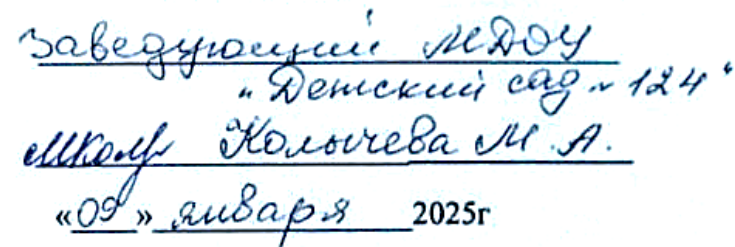 Заведующий МДОУ
"Детский сад № 124"
МКолы Колычева М.А.
«09» января 2025г